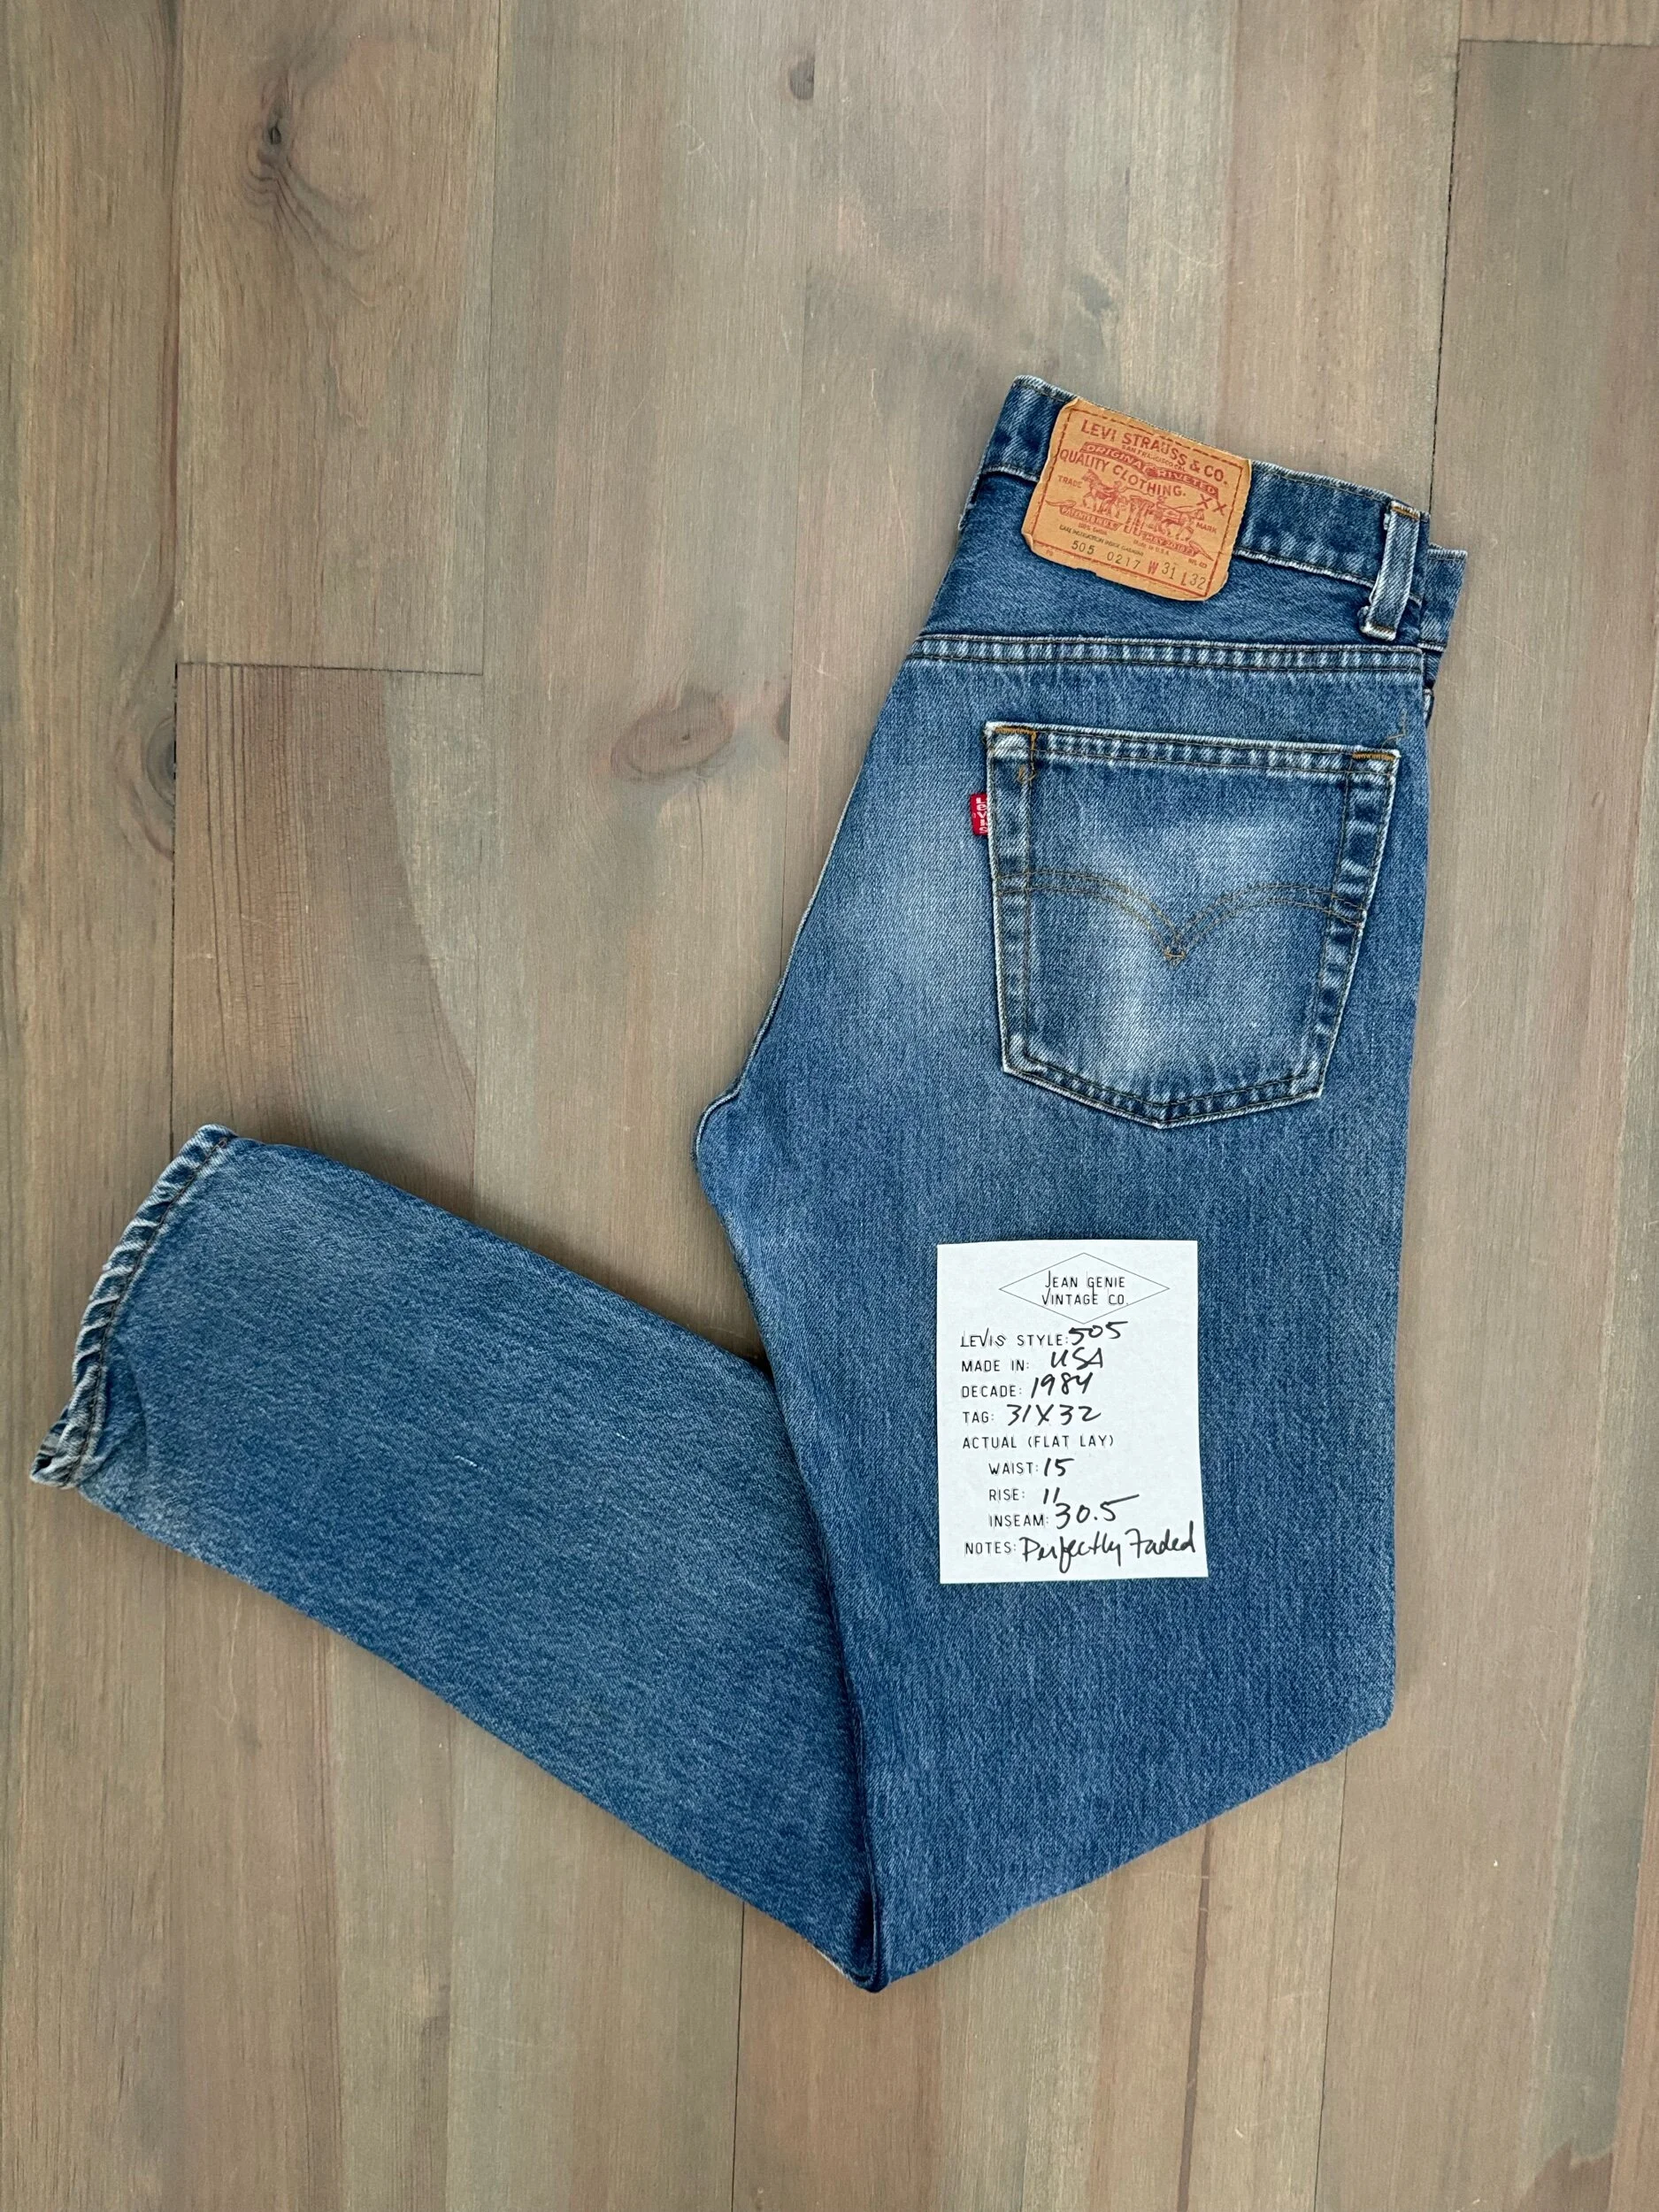 LEVI STRAUSS & CO.
SAN FRANCISCO CAL.
ORIGINAL RIVETED
QUALITY CLOTHING.
TRADE XX MARK
505 0217 W 31 L 32
LEVI'S
JEAN GENIE
VINTAGE CO.
LEVIS STYLE: 505
MADE IN: USA
DECADE: 1984
TAG: 31X32
ACTUAL (FLAT LAY)
WAIST: 15
RISE: 11
INSEAM: 30.5
NOTES: Perfectly Faded